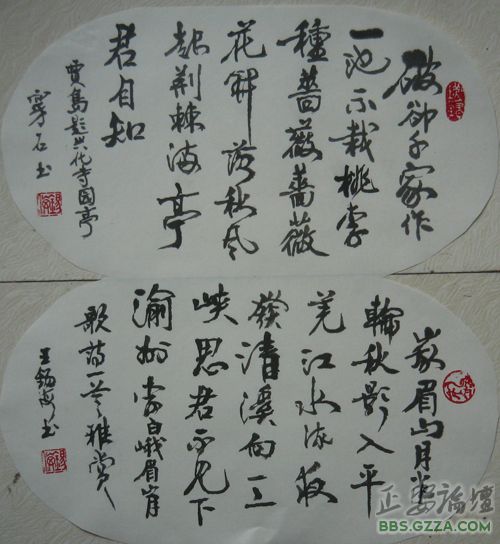 破卻千家作
一池不栽桃李
種薔薇薔薇
花落秋风
起荆棘满亭
君自知
賈島題兴化寺園亭
穿石书
峩眉山月半
輪秋影入平
羌江水流夜
發清溪向三
峡思君不见下
渝州李白峨眉山月
歌诗一首雅赏
王錫书
正安論壇
BBS.GZZA.COM